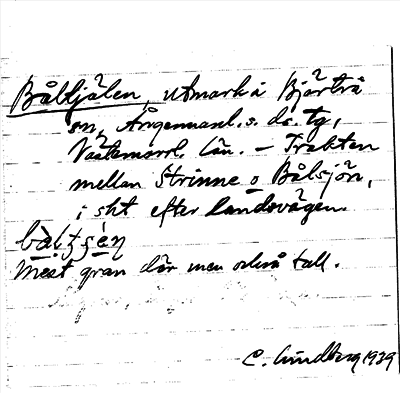 Båltjälen, utmark i Bjärtrå
sn, Ångermanl. s. ds. tg,
Västernorrl. län. – Trakten
mellan Strinne o Bålsjön,
i sht efter landsvägen.
bàltʒèŋ
Mest gran där men också tall.
C. Lindberg 1939